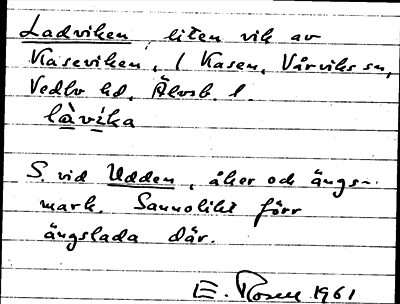 Ladviken, liten vik av
Kaseviken, i Kasen, Vårviks sn,
Vedbo hd, Älvsb. l.
là̱vi̱ka
S. vid Udden, åker och ängs-
mark. Sannolikt förr
ängslada där.
E. Rosell 1961